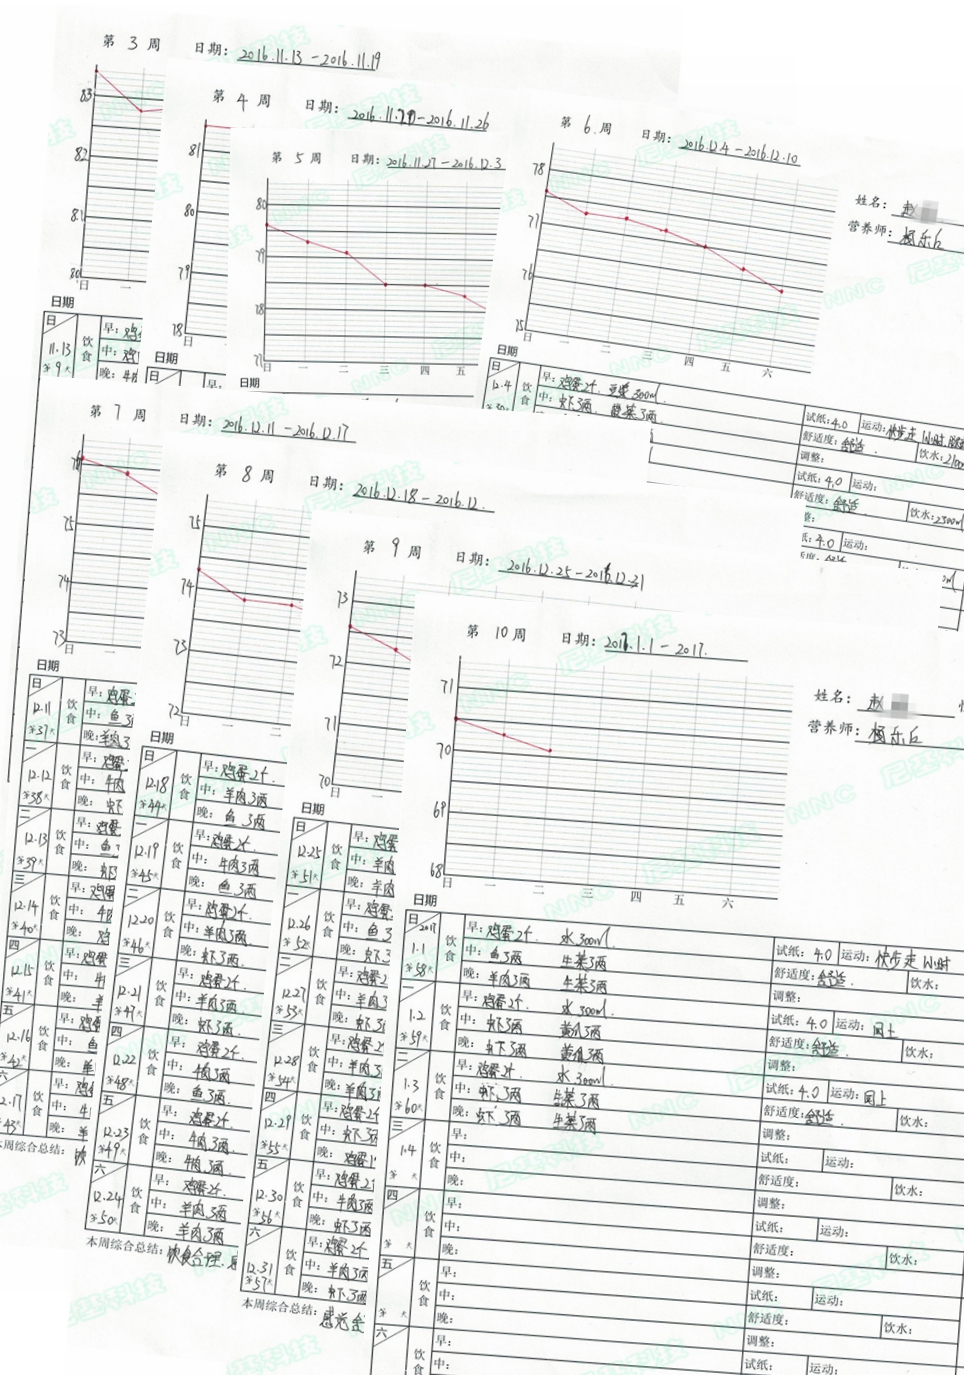 第 3 周 日期: 2016.11.13 - 2016.11.19
83
82
81
80
日 一
日期
日
11.13
第9天
饮食
早:
中:
晚:
第 4 周 日期: - 2016.11.26
81
80
79
78
日
日期
第 5 周 日期: 2016.11.27 - 2016.12.3
80
79
78
77
日 一 二 三 四 五
日期
第 6 周 日期: 2016.12.4 - 2016.12.10
姓名: 赵
营养师: 杨乐丘
78
77
76
75
日 一 二 三 四 五 六
日期
日
12.4
饮食
早: 鸡蛋2个. 豆浆300ml.
中: 虾3两.
试纸: 4.0 运动: 快步走
舒适度: 舒适. 饮水:
调整:
试纸: 4.0 运动:
舒适度: 舒适 饮水: 2300ml
第 7 周 日期: 2016.12.11 - 2016.12.17
76
75
74
73
日 一
日期
日
12.11 第37天 饮食 早: 鸡蛋
中: 鱼
晚: 羊肉3
一
12.12 第38天 饮食 早: 鸡蛋
中: 牛肉
晚: 虾
二
12.13 第39天 饮食 早: 鸡蛋
中: 鱼
晚: 虾
三
12.14 第40天 饮食 早: 鸡蛋
四
12.15 第41天 饮食 早: 鸡蛋
五
12.16 第42天 饮食
六
2.17 第43天 饮食
本周综合总结: 饮
第 8 周 日期: 2016.12.18 - 2016.12.
75
74
73
72
日 一 二
日期
日
12.18 第44天 饮食 早: 鸡蛋2个.
中: 羊肉3两
晚: 鱼 3两
一
12.19 第45天 饮食 早: 鸡蛋2个.
中: 牛肉3两
晚: 鱼 3两
二
12.20 第46天 饮食 早: 鸡蛋2个.
中: 羊肉3两.
晚: 虾3两
三
12.21 第47天 饮食 早: 鸡蛋2个
中: 羊肉3两
晚: 虾3两.
四
12.22 第48天 饮食 早: 鸡蛋2个.
中: 牛肉3两
晚: 鱼3两
五
12.23 第49天 饮食 早: 鸡蛋2个
中: 牛肉3两.
晚: 牛肉3两.
六
12.24 第50天 饮食 早: 鸡蛋2个.
中: 羊肉3两
晚: 羊肉3两
本周综合总结: 饮食合理.
第 9 周 日期: 2016.12.25 - 2016.12.31
73
72
71
70
日 一
日期
日
12.25 第51天 饮食 早: 鸡蛋
中: 羊肉
晚: 羊肉
一
12.26 第52天 饮食 早: 鸡蛋
中: 鱼3
晚: 虾3
二
12.27 第53天 饮食 早: 鸡蛋2
中: 羊肉3
晚: 虾3
三
12.28 第54天 饮食 早: 鸡蛋2
中: 羊肉3
晚: 羊肉3
四
12.29 第55天 饮食 早: 鸡蛋2个
中: 虾3两
五
12.30 第56天 饮食 早: 鸡蛋2个
中: 牛肉3两
晚: 虾3两
六
12.31 第57天 饮食 早: 鸡蛋2个
中: 羊肉3两
晚: 虾3两
本周综合总结: 感觉
第 10 周 日期: 2017.1.1 - 2017.
姓名: 赵
营养师: 杨乐丘
71
70
69
68
日 一 二 三 四 五 六
日期
日
2017 1.1 第58天 饮食 早: 鸡蛋2个. 水300ml.
中: 鱼3两 生菜3两
晚: 羊肉3两 生菜3两
试纸: 4.0 运动: 快步走 1小时
舒适度: 舒适. 饮水:
调整:
一
1.2 第59天 饮食 早: 鸡蛋2个. 水300ml
中: 虾3两 黄瓜3两
晚: 虾3两 黄瓜3两
试纸: 4.0 运动: 同上
舒适度: 舒适. 饮水:
调整:
二
1.3 第60天 饮食 早: 鸡蛋2个. 水300ml
中: 虾3两 生菜3两
晚: 虾3两 生菜3两
试纸: 4.0 运动: 同上
舒适度: 舒适. 饮水:
调整:
三
1.4 第 天 饮食 早:
中:
晚:
试纸: 运动:
舒适度: 饮水:
调整:
四
第 天 饮食 早:
中:
晚:
试纸: 运动:
舒适度: 饮水:
调整:
五
第 天 饮食 早:
中:
晚:
试纸: 运动:
舒适度: 饮水:
调整:
六
饮食 早:
中:
试纸: 运动: